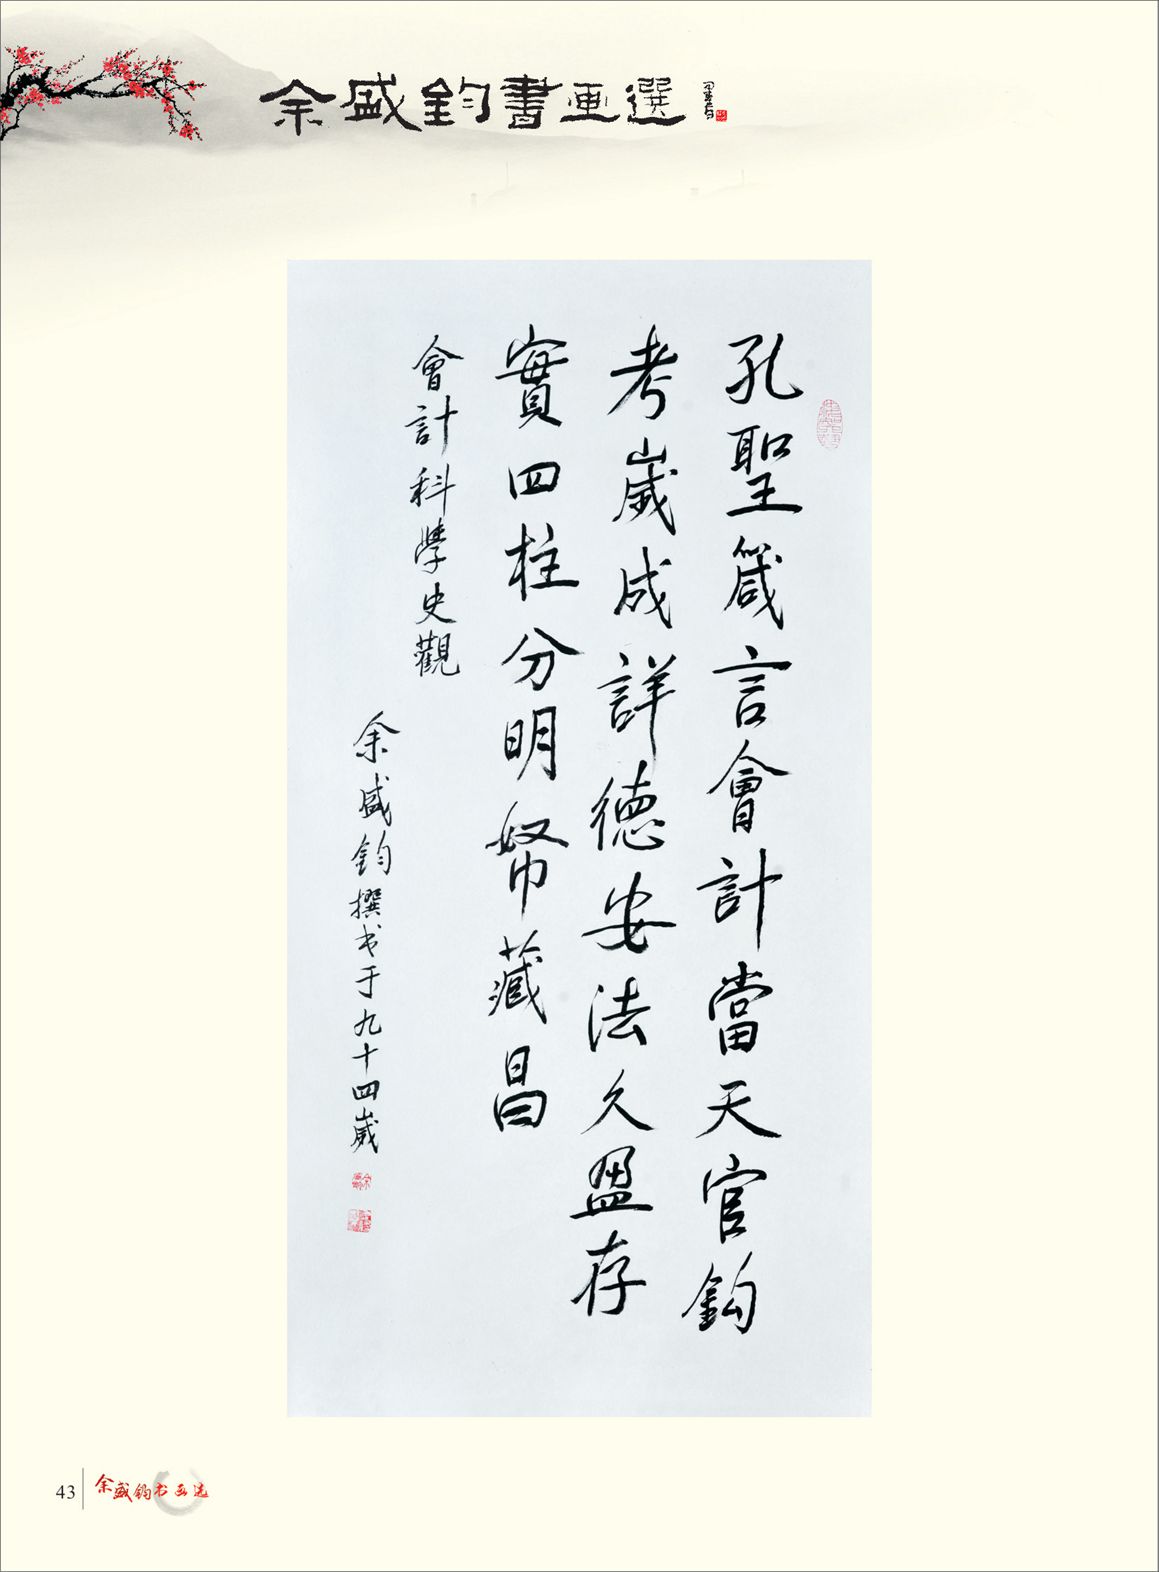 余盛鈞書画選
孔聖箴言會計當天官鈞
考嵗成詳德安法久盈存
實四柱分明帑藏昌
會計科學史觀
余盛鈞撰书于九十四嵗
43
余盛钧书画选